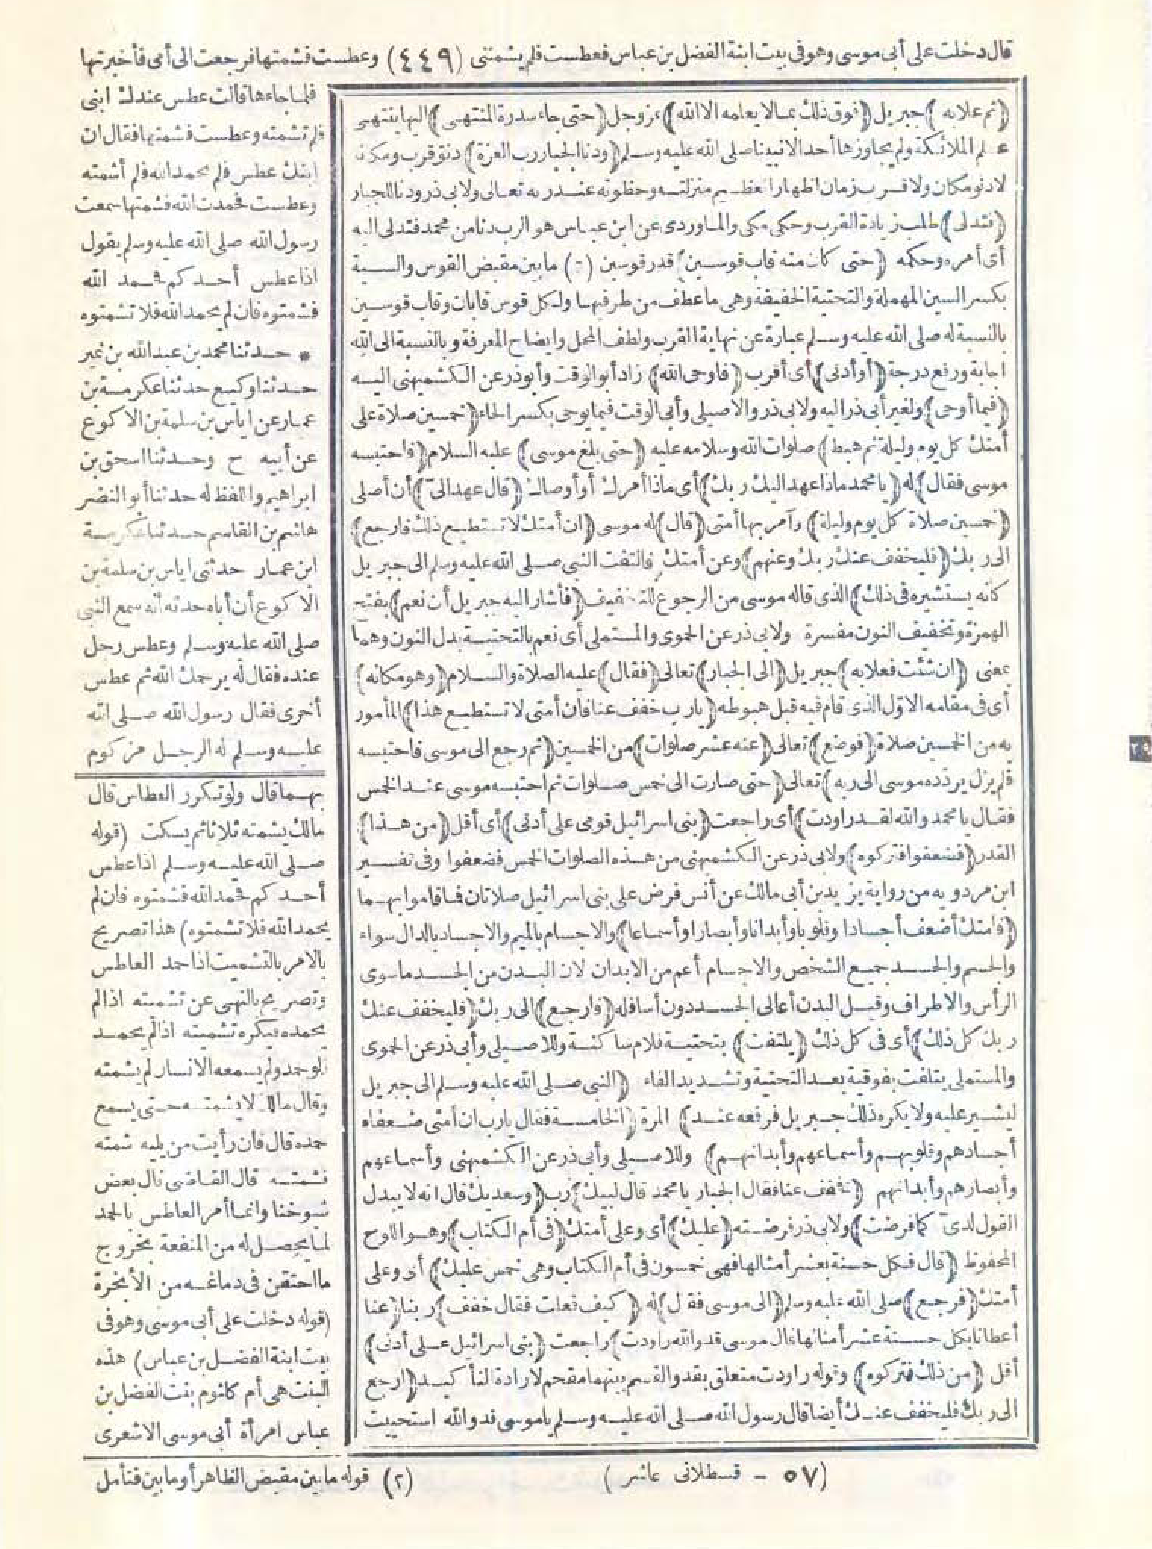 قال دخلت على أبي موسى وهو في بيت ابنة الفضل بن عباس فعطست فلم يشمتني (٤٤٩) وعطست فشمتها فرجعت الى أمى فأخبرتها
(ثم علا به) جبريل (فوق ذلك بما لا يعلمه الا الله) عزوجل (حتى جاء سدرة المنتهى) اليها ينتهى
علم الملائكة ولم يجاوزها أحد الا نبينا صلى الله عليه وسلم (ودنا الجبار رب العزة) دنو قرب ومكانة
لا دنو مكان ولا قرب زمان اظهارا لعظيم منزلته وحظوته عند ربه تعالى ولابى ذر ودنا للجبار
(فتدلى) طلب زيادة القرب وحكى مكى والماوردى عن ابن عباس هو الرب دنا من محمد فتدلى اليه
أى أمره وحكمه (حتى كان منه قاب قوسين) قدر قوسين (٢) ما بين مقبض القوس والسية
بكسر السين المهملة والتحتية الخفيفة وهى ما عطف من طرفيها ولكل قوس قابان وقاب قوسين
بالنسبة له صلى الله عليه وسلم عبارة عن نهاية القرب ولطف المحل وايضاح المعرفة وبالنسبة الى الله
اجابة ورفع درجة (أو أدنى) أى أقرب (فاوحى الله) زاد أبو الوقت وأبو ذر عن الكشميهنى اليه
(فيما أوحى) ولغير أبى ذر اليه ولابى ذر والاصيلى وأبى الوقت فيما يوحى بكسر الحاء (خمسين صلاة على
أمتك كل يوم وليلة ثم هبط) صلوات الله وسلامه عليه (حتى بلغ موسى) عليه السلام (فاحتبسه
موسى فقال) له (يا محمد ماذا عهد اليك ربك) أى ماذا أمرك أو أوصاك (قال عهد الىّ) أن أصلى
(خمسين صلاة كل يوم وليلة) وآمر بها أمتى (قال) له موسى (ان أمتك لا تستطيع ذلك فارجع)
الى ربك (فليخفف عنك ربك وعنهم) وعن أمتك فالتفت النبى صلى الله عليه وسلم الى جبريل
كأنه يستشيره فى ذلك) الذى قاله موسى من الرجوع للتخفيف (فأشار اليه جبريل أن نعم) بفتح
الهمزة وتخفيف النون مفسرة ولابى ذر عن الحموى والمستملى أى نعم بالتحتية بدل النون وهما
بمعنى (ان شئت فعلا به) جبريل (الى الجبار) تعالى (فقال) عليه الصلاة والسلام (وهو مكانه)
أى فى مقامه الاول الذى قام فيه قبل هبوطه (يا رب خفف عنا فان أمتى لا تستطيع هذا) المأمور
به من الخمسين صلاة (فوضع) تعالى (عنه عشر صلوات) من الخمسين (ثم رجع الى موسى فاحتبسه
فلم يزل يردده موسى الى ربه) تعالى (حتى صارت الى خمس صلوات ثم احتبسه موسى عند الخمس
فقال يا محمد والله لقد راودت) أى راجعت (بنى اسرائيل قومى على أدنى) أى أقل (من هذا)
القدر (فضعفوا فتركوه) ولابى ذر عن الكشميهنى من هذه الصلوات الخمس فضعفوا وفى تفسير
ابن مردويه من رواية يزيد بن أبى مالك عن أنس فرض على بنى اسرائيل صلاتان فما قاموا بهما
(فامتك أضعف أجسادا وقلوبا وأبدانا وأبصارا وأسماعا) والاجسام بالميم والاجساد بالدال سواء
والجسم والجسد جميع الشخص والاجسام أعم من الابدان لان البدن من الجسد ما سوى
الرأس والاطراف وقيل البدن أعالى الجسد دون أسافله (فارجع) الى ربك (فليخفف عنك
ربك كل ذلك) أى فى كل ذلك (يلتفت) بتحتية فلام ساكنة وللاصيلى وأبى ذر عن الحموى
والمستملى يتلفت بفوقية بعد التحتية وتشديد الفاء (النبى صلى الله عليه وسلم الى جبريل
ليشير عليه ولا يكره ذلك جبريل فرفعه عند) المرة (الخامسة فقال يا رب ان أمتى ضعفاء
أجسادهم وقلوبهم وأسماعهم وأبدانهم) وللاصيلى وأبى ذر عن الكشميهنى وأسماعهم
وأبصارهم وأبدانهم (فخفف عنا فقال الجبار يا محمد قال لبيك) رب (وسعديك قال انه لا يبدل
القول لدىّ كما فرضت) ولابى ذر فرضته (عليك) أى وعلى أمتك (فى أم الكتاب) وهو اللوح
المحفوظ (قال فكل حسنة بعشر أمثالها فهى خمسون فى أم الكتاب وهى خمس عليك) أى وعلى
أمتك (فرجع) صلى الله عليه وسلم (الى موسى فقال) له (كيف فعلت فقال خفف) ربنا (عنا
أعطانا بكل حسنة عشر أمثالها قال موسى قد والله راودت) راجعت (بنى اسرائيل على أدنى)
أقل (من ذلك فتركوه) وقوله راودت متعلق بقد والقسم بينهما مقحم لارادة التأكيد (ارجع
الى ربك فليخفف عنك أيضا قال رسول الله صلى الله عليه وسلم يا موسى قد والله استحييت
فلما جاءها قالت عطس عندك ابنى
فلم تشمته وعطست فشمتها فقال ان
ابنك عطس فلم يحمد الله فلم أشمته
وعطست فحمدت الله فشمتها سمعت
رسول الله صلى الله عليه وسلم يقول
اذا عطس أحدكم فحمد الله
فشمتوه فان لم يحمد الله فلا تشمتوه
* حدثنا محمد بن عبد الله بن نمير
حدثنا وكيع حدثنا عكرمة بن
عمار عن اياس بن سلمة بن الاكوع
عن أبيه ح وحدثنا اسحق بن
ابراهيم واللفظ له حدثنا أبو النضر
هاشم بن القاسم حدثنا عكرمة
ابن عمار حدثنى اياس بن سلمة بن
الاكوع أن أباه حدثه أنه سمع النبى
صلى الله عليه وسلم وعطس رجل
عنده فقال له يرحمك الله ثم عطس
أخرى فقال رسول الله صلى الله
عليه وسلم له الرجل مزكوم
بهما قال ولو تكرر العطاس قال
مالك يشمته ثلاثا ثم يسكت (قوله
صلى الله عليه وسلم اذا عطس
أحدكم فحمد الله فشمتوه فان لم
يحمد الله فلا تشمتوه) هذا تصريح
بالامر بالتشميت اذا حمد العاطس
وتصريح بالنهى عن تشميته اذا لم
يحمده فيكره تشميته اذا لم يحمد
فلو حمد ولم يسمعه الانسان لم يشمته
وقال مالك لا يشمته حتى يسمع
حمده قال فان رأيت من يليه شمته
فشمته قال القاضى قال بعض
شيوخنا وانما أمر العاطس بالحمد
لما يحصل له من المنفعة بخروج
ما احتقن فى دماغه من الأبخرة
(قوله دخلت على أبى موسى وهو فى
بيت ابنة الفضل بن عباس) هذه
البنت هى أم كلثوم بنت الفضل بن
عباس امرأة أبى موسى الاشعرى
(٥٧ - قسطلانى عاشر) (٢) قوله ما بين مقبض الظاهر أو ما بين فتأمل